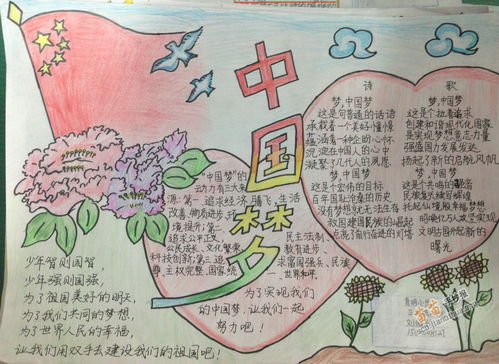 中国梦
诗 歌
梦,中国梦
这是句普通的话语
承载着一个美好憧憬
蕴涵着一种企盼心怀
沉淀在中国人的心中
凝聚了几代人的夙愿
梦,中国梦
这是个宏伟的目标
百年国耻沧桑的历史
没有梦想就无法生存
救国建国民族的崛起
点亮了前行奋进的灯塔
梦,中国梦
这是个执着追求
创建和谐现代化国家
是实现梦想意志力量
强盛国力发展发达
扬起了新的启航风帆
梦,中国梦
这是个共鸣的
唤醒亿万人皮
文明古国升起新的
曙光
"中国梦"的
动力有三大来
源:第一,追求经济腾飞,生活
改善,物质进步,环
境提升;第二,
追求公平正义,民主法制,
公民成长,文化繁荣,教育进步,
科技创新;第三,追求富国强兵,民族
尊王权完整,国家统一,世界和平.
为了实现我们
的中国梦,让我们一起
努力吧!
少年智则国智,
少年强则国强,
为了祖国美好的明天,
为了我们共同的梦想,
为了世界人民的幸福,
让我们用双手去建设我们的祖国吧!